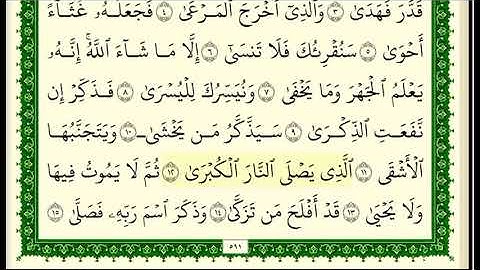 قَدَّرَ فَهَدَىٰ ٣ وَالَّذِي أَخْرَجَ الْمَرْعَىٰ ٤ فَجَعَلَهُ غُثَاءً
أَحْوَىٰ ٥ سَنُقْرِئُكَ فَلَا تَنسَىٰ ٦ إِلَّا مَا شَاءَ اللَّهُ ۚ إِنَّهُ
يَعْلَمُ الْجَهْرَ وَمَا يَخْفَىٰ ٧ وَنُيَسِّرُكَ لِلْيُسْرَىٰ ٨ فَذَكِّرْ إِن
نَّفَعَتِ الذِّكْرَىٰ ٩ سَيَذَّكَّرُ مَن يَخْشَىٰ ١٠ وَيَتَجَنَّبُهَا
الْأَشْقَى ١١ الَّذِي يَصْلَى النَّارَ الْكُبْرَىٰ ١٢ ثُمَّ لَا يَمُوتُ فِيهَا
وَلَا يَحْيَىٰ ١٣ قَدْ أَفْلَحَ مَن تَزَكَّىٰ ١٤ وَذَكَرَ اسْمَ رَبِّهِ فَصَلَّىٰ ١٥
٥٩١